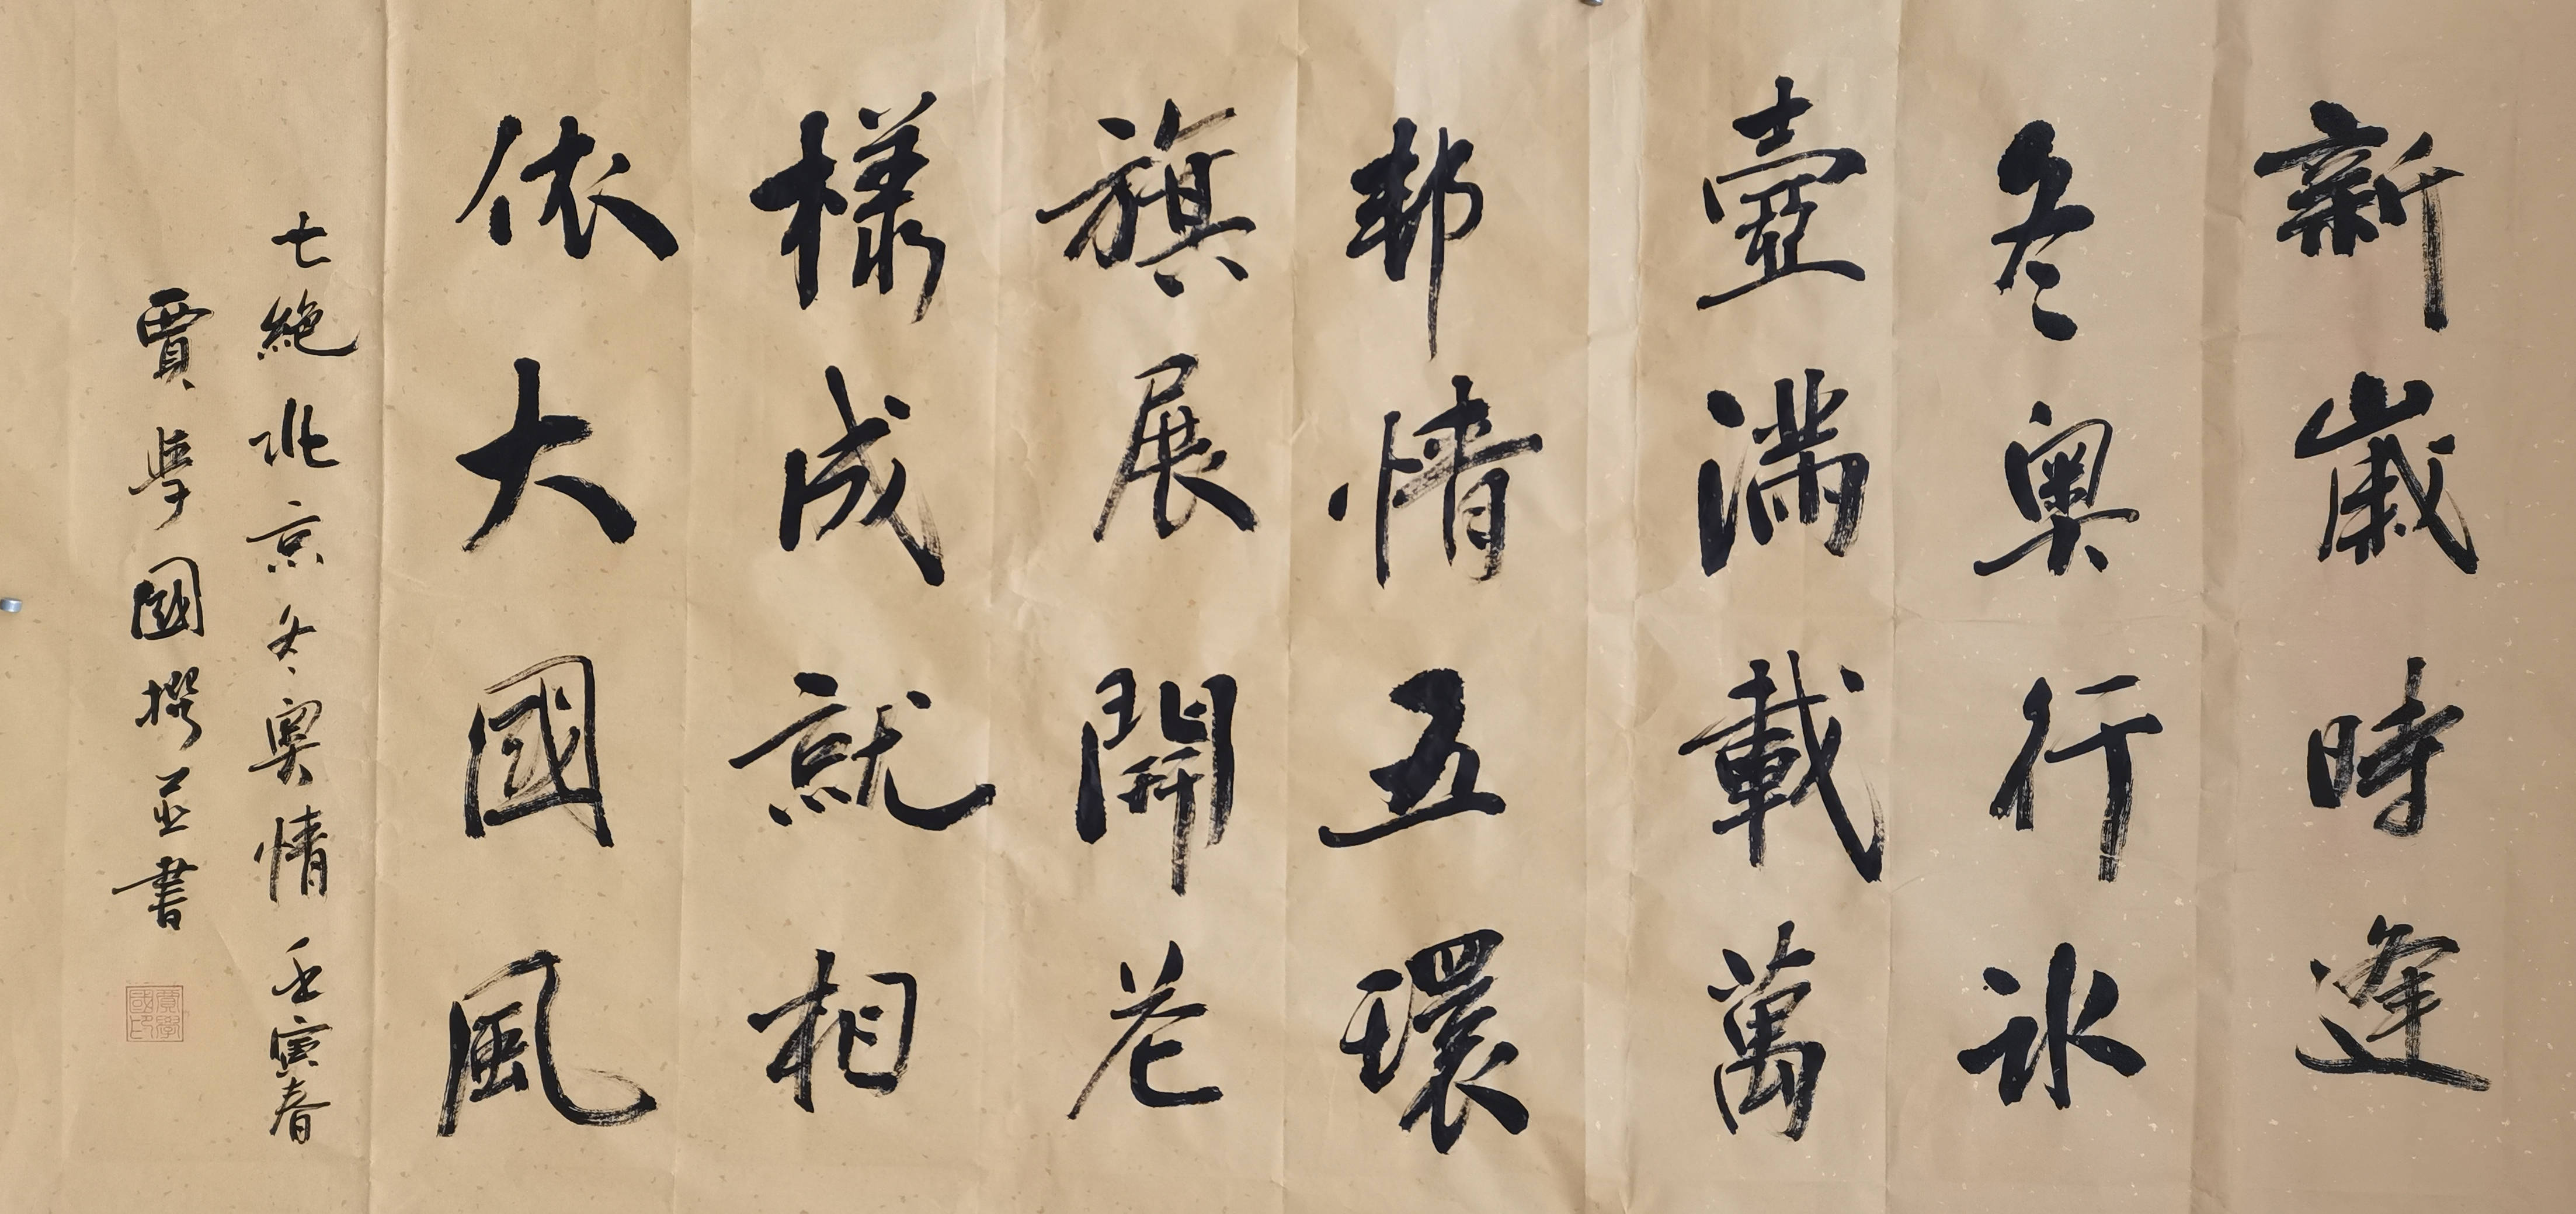 新歲時逢
冬奧行冰
壺滿載萬
邦情五環
旗展開花
樣成就相
依大國風
七絕北京冬奧情壬寅春
賈學國撰並書
賈學國印